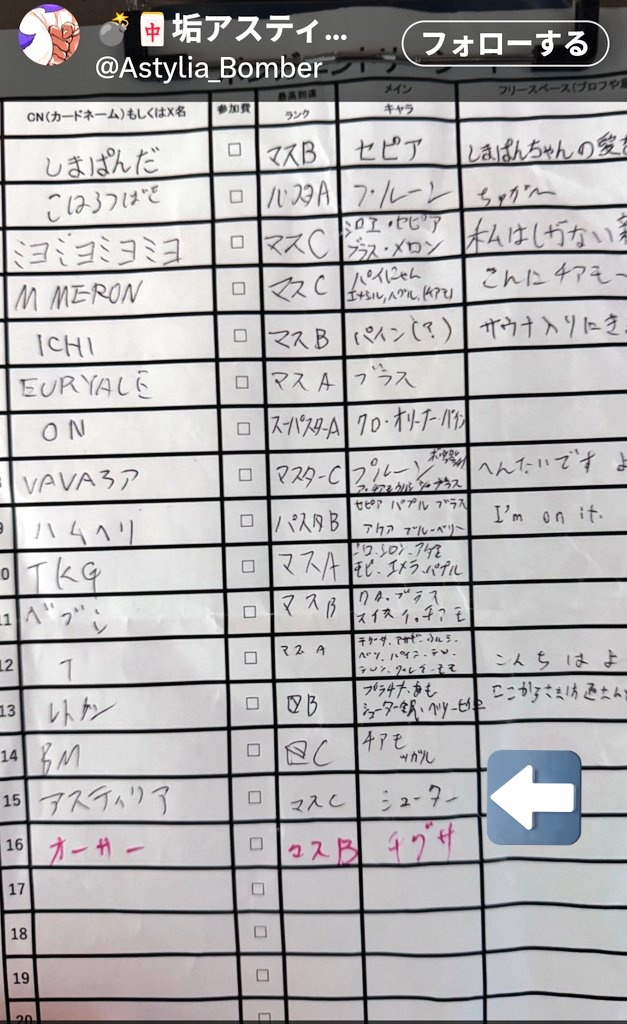 💣🀄垢アスティ...
フォローする
@Astylia_Bomber
CN(カードネーム)もしくはX名 参加費 最高到達ランク メインキャラ フリースペース(プロフや
しまぱんだ □ マスB セピア しまぱんちゃんの愛を
こはるつばさ □ パスタA プルーン ちゅが〜
ミヨミヨミヨミヨ □ マスC シロエ・セピア 私はしがない
プラス・メロン
M MERON □ マスC パイにゃん こんにチアモ〜
ICHI □ マスB パイン(?) サウナ入りにき
EURYALE □ マスA プラス
ON □ スーパースターA クロ・オリーナー・パイン
VAVAろア □ マスターC プルーン へんたいです よ
9 ハムヘリ □ パスタB セピア パプル プラス I'm on it.
アクア ブルーベリー
10 TKG □ マスA シロ、シロン、アゲ
モピ、エメラ、パプル
11 ベブシ □ マスB クロ、プラス
スイカ、チアモ
12 T □ マスA こんちは よ
13 レトケン □ B プラチナ、
シューター
14 BM □ C チアモ
ツガル
15 アスティリア □ マスC シューター
16 オーサー □ マスB チグサ
17 □
18 □
19 □
20 □